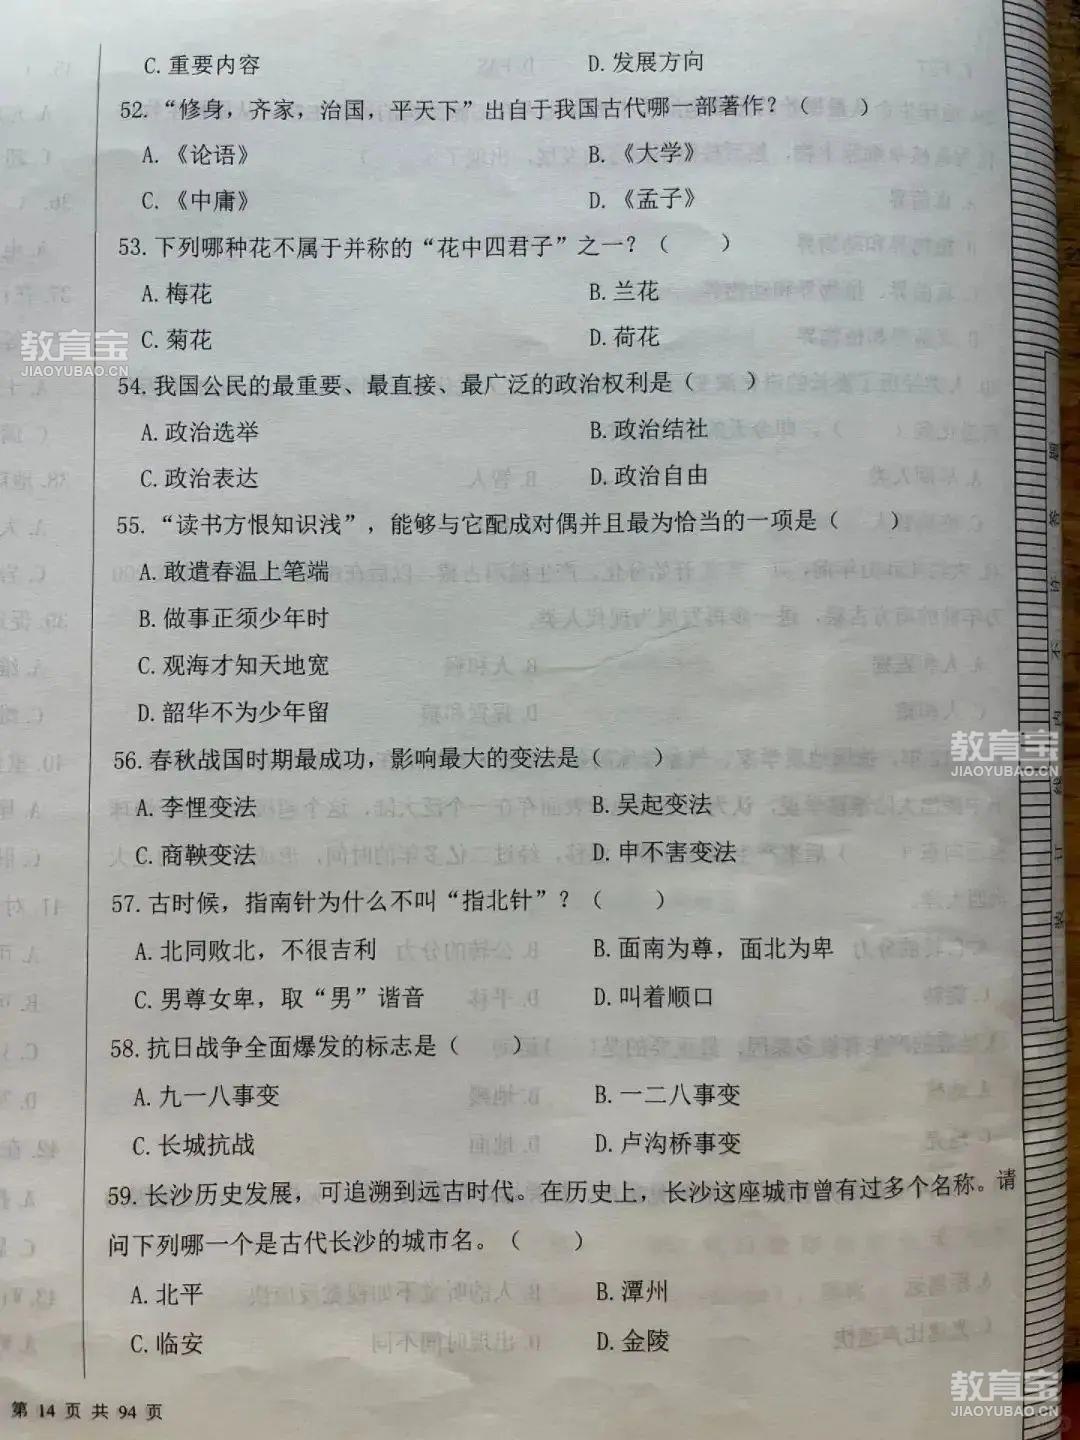 C. 重要内容
D. 发展方向
52. “修身，齐家，治国，平天下”出自于我国古代哪一部著作？（　　）
A. 《论语》
B. 《大学》
C. 《中庸》
D. 《孟子》
53. 下列哪种花不属于并称的“花中四君子”之一？（　　）
A. 梅花
B. 兰花
C. 菊花
D. 荷花
54. 我国公民的最重要、最直接、最广泛的政治权利是（　　）
A. 政治选举
B. 政治结社
C. 政治表达
D. 政治自由
55. “读书方恨知识浅”，能够与它配成对偶并且最为恰当的一项是（　　）
A. 敢遣春温上笔端
B. 做事正须少年时
C. 观海才知天地宽
D. 韶华不为少年留
56. 春秋战国时期最成功，影响最大的变法是（　　）
A. 李悝变法
B. 吴起变法
C. 商鞅变法
D. 申不害变法
57. 古时候，指南针为什么不叫“指北针”？（　　）
A. 北同败北，不很吉利
B. 面南为尊，面北为卑
C. 男尊女卑，取“男”谐音
D. 叫着顺口
58. 抗日战争全面爆发的标志是（　　）
A. 九一八事变
B. 一二八事变
C. 长城抗战
D. 卢沟桥事变
59. 长沙历史发展，可追溯到远古时代。在历史上，长沙这座城市曾有过多个名称。请
问下列哪一个是古代长沙的城市名。（　　）
A. 北平
B. 潭州
C. 临安
D. 金陵
第 14 页 共 94 页
教育宝
JIAOYUBAO.CN
教育宝
JIAOYUBAO.CN
教育宝
JIAOYUBAO.CN